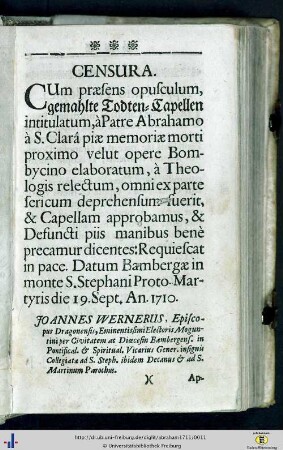 CENSURA.
CUm præsens opusculum,
gemahlte Todten-Capellen
intitulatum, à Patre Abrahamo
à S. Clarâ piæ memoriæ morti
proximo velut opere Bom-
bycino elaboratum, à Theo-
logis relectum, omni ex parte
sericum deprehensum fuerit,
& Capellam approbamus, &
Defuncti piis manibus benè
precamur dicentes: Requiescat
in pace. Datum Bambergæ in
monte S. Stephani Proto-Mar-
tyris die 19. Sept. An. 1710.
JOANNES WERNERUS, Episco-
pus Dragonensis, Eminentissimi Electoris Mogun-
tini per Civitatem ac Diœcesin Bambergens. in
Pontifical. & Spiritual. Vicarius Gener. insignis
Collegiatæ ad S. Steph. ibidem Decanus & ad S.
Martinum Parochus.
X Ap-
http://dl.ub.uni-freiburg.de/diglit/abraham1711/0011
© Universitätsbibliothek Freiburg